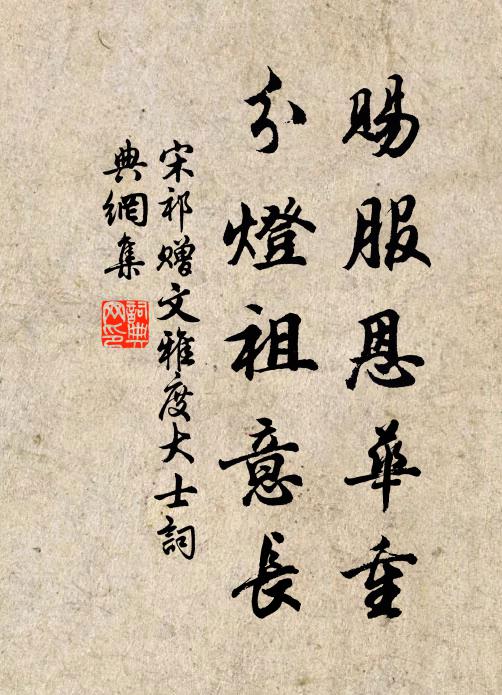 賜服恩華重
分燈祖意長
宋祁贈文雅度大士詞
典網集
詞典網印